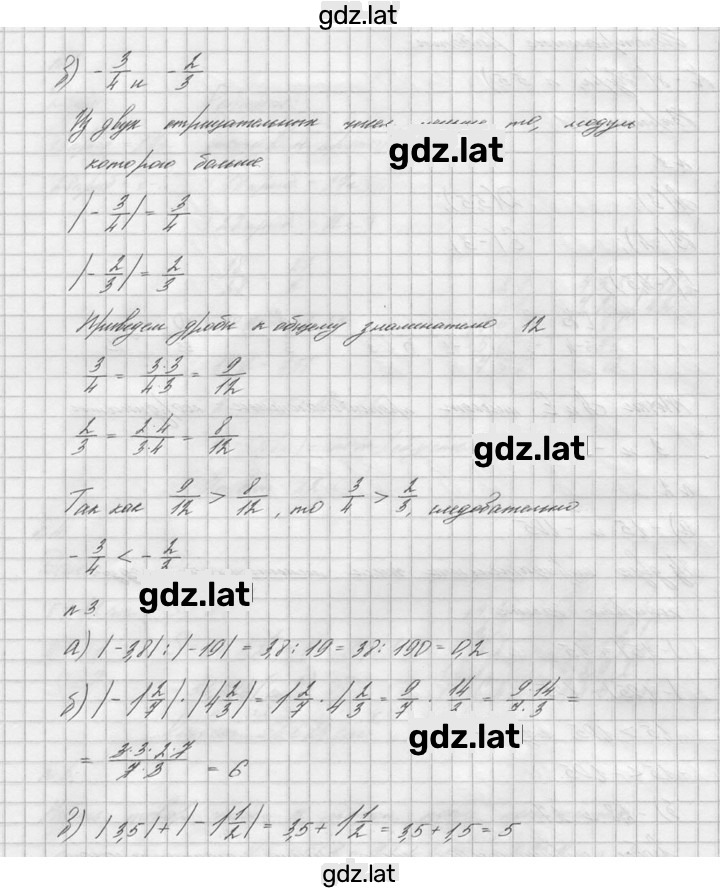 gdz.lat
в) -3/4 и -2/3
Из двух отрицательных чисел то, модуль
gdz.lat
которого больше.
|-3/4| = 3/4
|-2/3| = 2/3
Приведем дроби к общему знаменателю 12
3/4 = 3·3/4·3 = 9/12
2/3 = 2·4/3·4 = 8/12
gdz.lat
Так как 9/12 > 8/12, то 3/4 > 2/3, следовательно
-3/4 < -2/3
gdz.lat
n 3.
а) |-3,8| : |-19| = 3,8 : 19 = 38 : 190 = 0,2
б) |-1 2/7| · |4 2/3| = 1 2/7 · 4 2/3 = 9/7 · 14/3 = 9·14/7·3 =
gdz.lat
= 3·3·2·7/7·3 = 6
в) |3,5| + |-1 1/2| = 3,5 + 1 1/2 = 3,5 + 1,5 = 5
gdz.lat